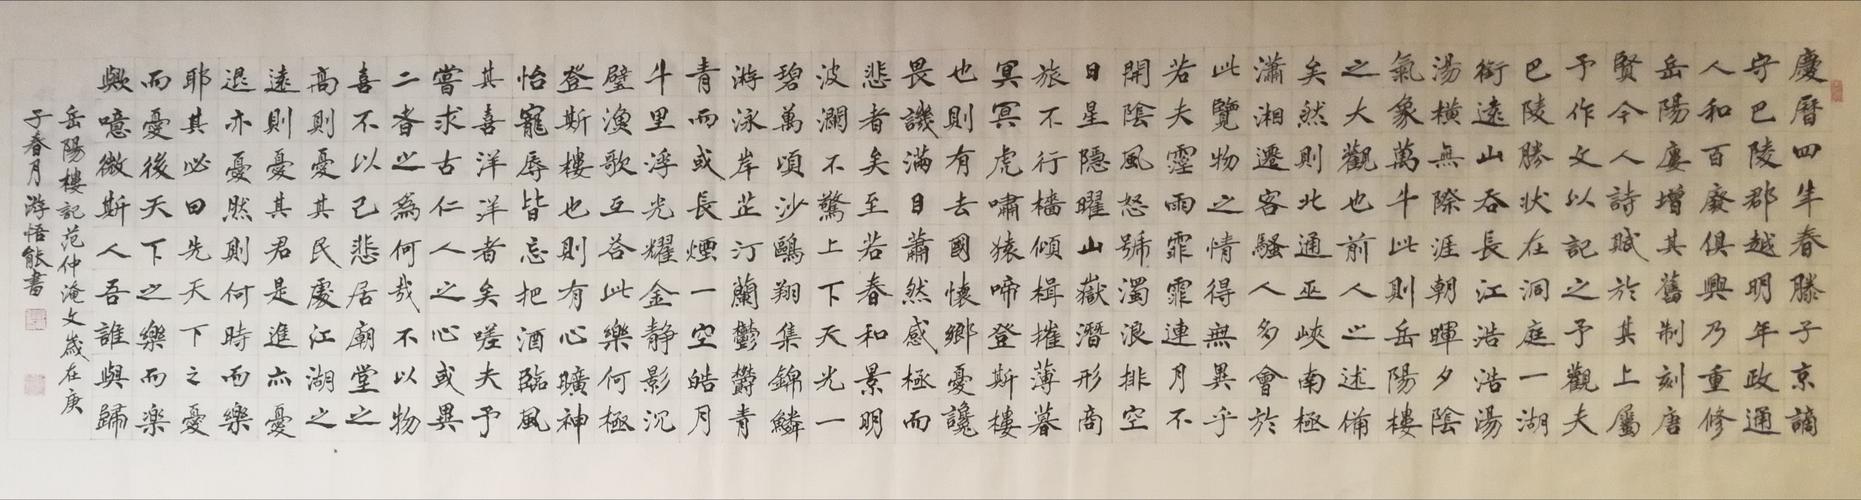 慶曆四年春滕子京謫
守巴陵郡越明年政通
人和百廢俱興乃重修
岳陽廔增其舊制刻唐
賢今人詩賦於其上屬
予作文以記之予觀夫
巴陵勝状在洞庭一湖
銜遠山吞長江浩浩湯
湯橫無際涯朝暉夕陰
氣象萬千此則岳陽樓
之大觀也前人之述備
矣然則北通巫峽南極
瀟湘遷客騷人多會於
此覽物之情得無異乎
若夫霪雨霏霏連月不
開陰風怒號濁浪排空
日星隱曜山嶽潛形商
旅不行檣傾楫摧薄暮
冥冥虎嘯猿啼登斯樓
也則有去國懷鄉憂讒
畏譏滿目蕭然感極而
悲者矣至若春和景明
波瀾不驚上下天光一
碧萬頃沙鷗翔集錦鱗
游泳岸芷汀蘭鬱鬱青
青而或長煙一空皓月
千里浮光耀金静影沉
璧漁歌互答此樂何極
登斯樓也則有心曠神
怡寵辱皆忘把酒臨風
其喜洋洋者矣嗟夫予
嘗求古仁人之心或異
二者之為何哉不以物
喜不以己悲居廟堂之
高則憂其民處江湖之
遠則憂其君是進亦憂
退亦憂然則何時而樂
耶其必曰先天下之憂
而憂後天下之樂而楽
歟噫微斯人吾誰與歸
岳陽樓記范仲淹文歲在庚
子春月游悟能書